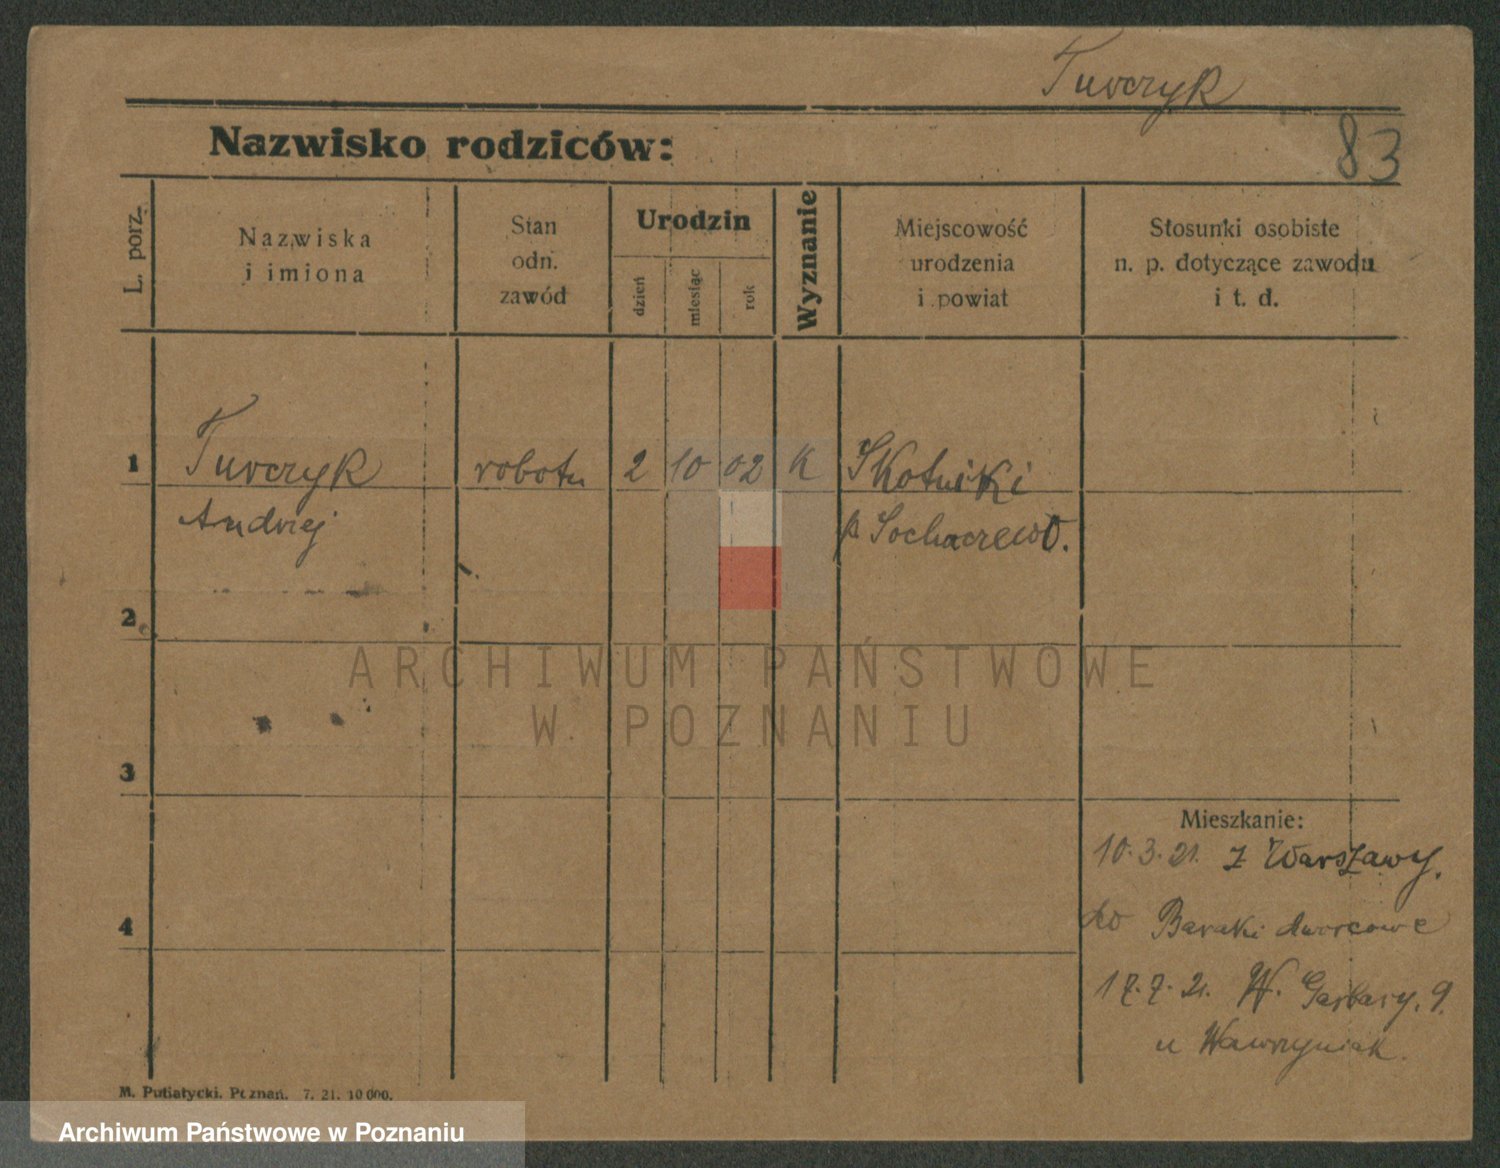 Turczyk
83
Nazwisko rodziców:
L. porz.
Nazwiska
i imiona
Stan
odn.
zawód
Urodzin
dzień
miesiąc
rok
Wyznanie
Miejscowość
urodzenia
i powiat
Stosunki osobiste
n. p. dotyczące zawodu
i t. d.
1 Turczyk robotn 2 10 02 K Skotniki
Andrzej p Sochaczewo.
2
3
4
Mieszkanie:
10.3.21. z Warszawy.
do Baraki dworcowe
17.7.21. W. Garbary. 9.
u Wawrzyniak.
M. Putiatycki. Poznań. 7. 21. 10 000.
ARCHIWUM PAŃSTWOWE
W POZNANIU
Archiwum Państwowe w Poznaniu